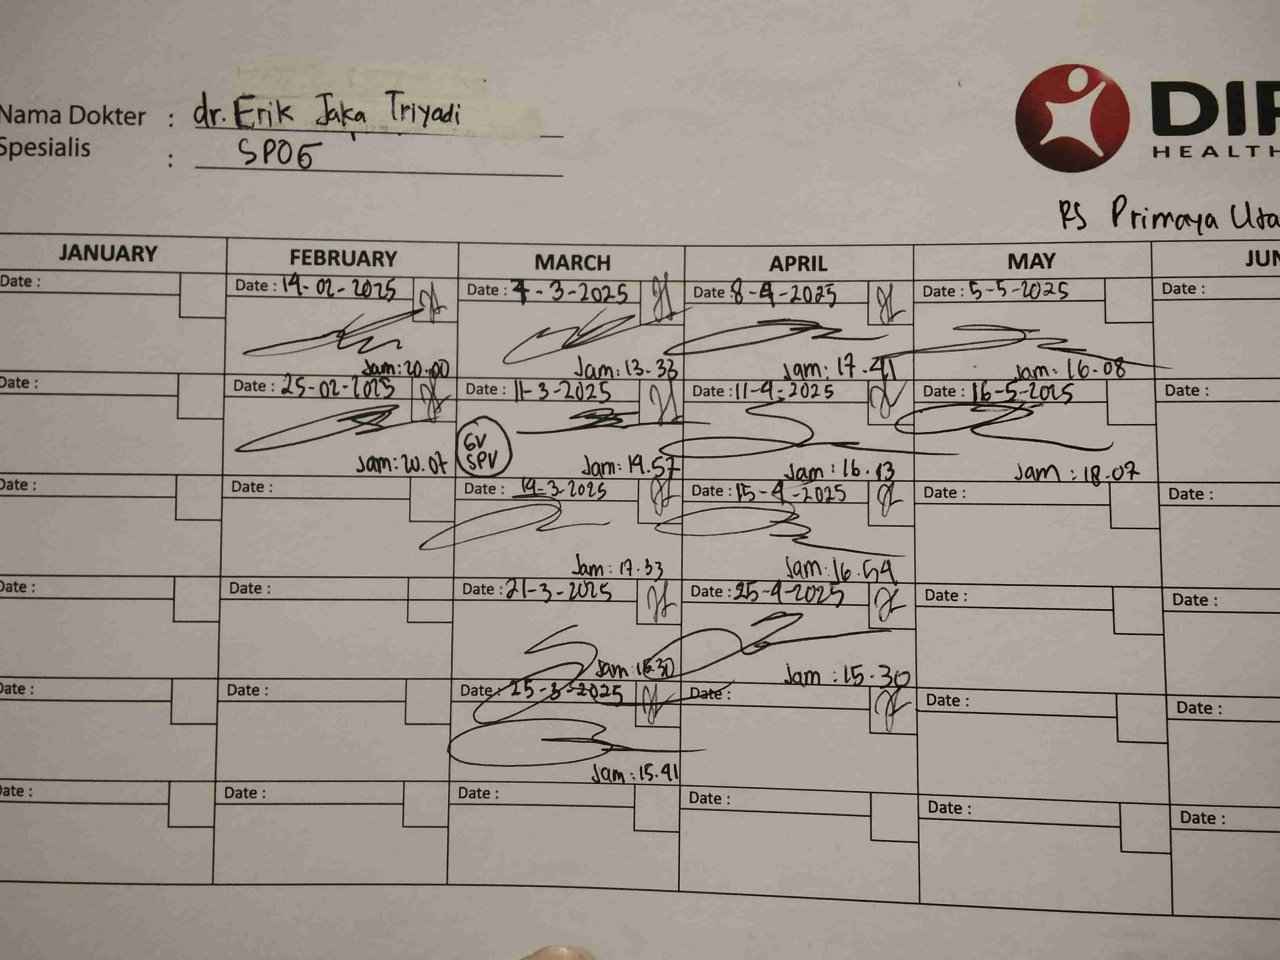 Nama Dokter : dr. Erik Jaka Triyadi
Spesialis : SPOG
DIF
HEALTH
RS Primaya Uta
JANUARY FEBRUARY MARCH APRIL MAY JUN
Date : Date : 19-02-2025 Date : 7-3-2025 Date : 8-4-2025 Date : 5-5-2025 Date :
Jam: 20.00 Jam: 13.33 Jam: 17.41 Jam: 16.08
Date : Date : 25-02-2025 Date : 11-3-2025 Date : 11-4-2025 Date : 16-5-2025 Date :
GV
SPV
Jam: 20.07 Jam: 19.57 Jam: 16.13 Jam: 18.07
Date : Date : Date : 19-3-2025 Date : 15-4-2025 Date : Date :
Jam: 17.33 Jam: 16.54
Date : Date : Date : 21-3-2025 Date : 25-4-2025 Date : Date :
Jam: 15.30 Jam: 15.30
Date : Date : Date : 25-3-2025 Date : Date : Date :
Jam: 15.41
Date : Date : Date : Date : Date : Date :